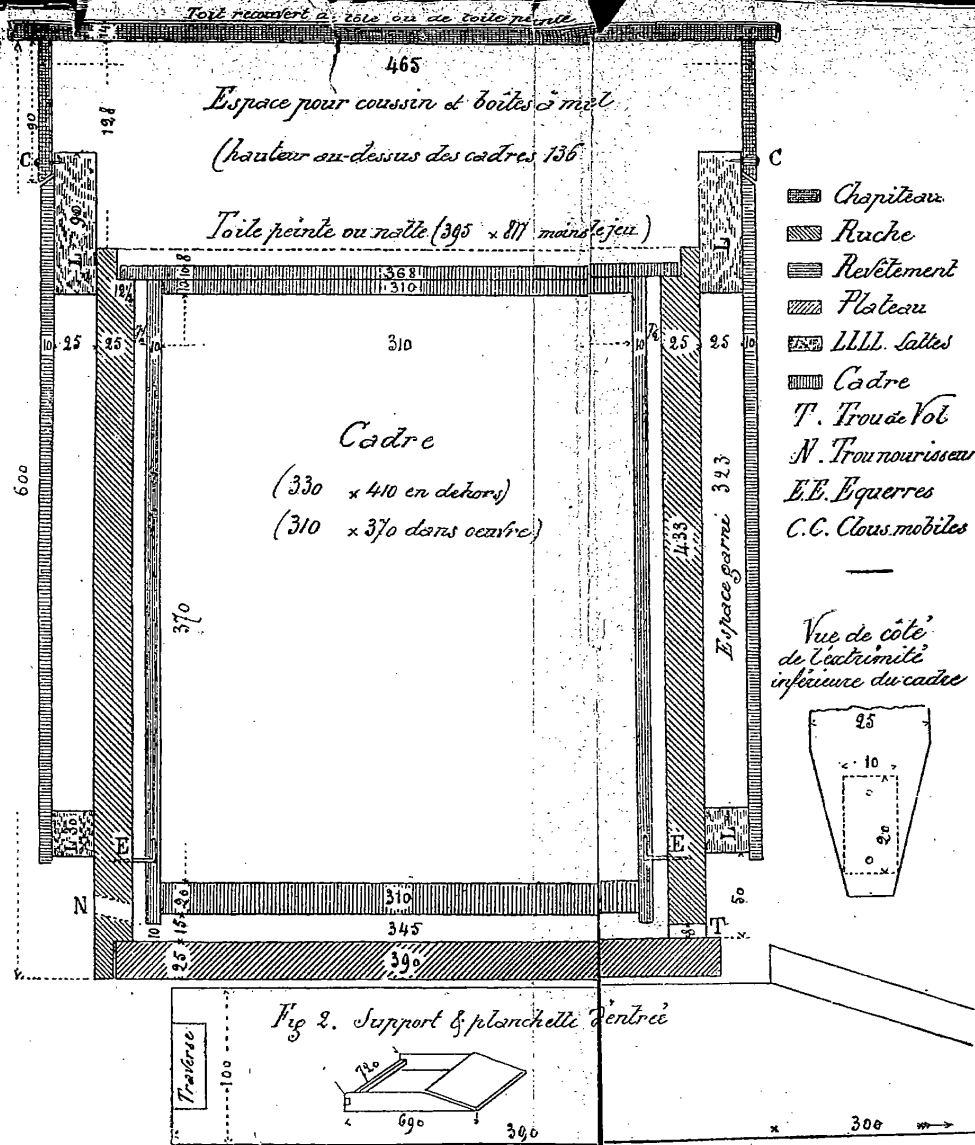 Toit recouvert de tôle ou de toile peinte
465
Espace pour coussin et boîtes à miel
(hauteur au-dessus des cadres 136
Toile peinte ou natte (395 x 877 moins le jeu)
90
128
C
C
L 90
L
368
310
10 8
12½
7½
7½
10
25
25
10
310
10
25
25
10
600
Cadre
(330 x 410 en dehors)
(310 x 370 dans oeuvre)
370
433
Espace garni 323
L 30
L
E
E
N
T
310
345
390
20
15
25
10
8
50
Chapiteau
Ruche
Revêtement
Plateau
LLLL. Lattes
Cadre
T. Trou de Vol
N. Trou nourisseur
E.E. Equerres
C.C. Clous mobiles
Vue de côté
de l'extrimité
inférieure du cadre
25
10
20
Fig 2. Support & planchette d'entrée
Traverse
100
720
690
390
x 300